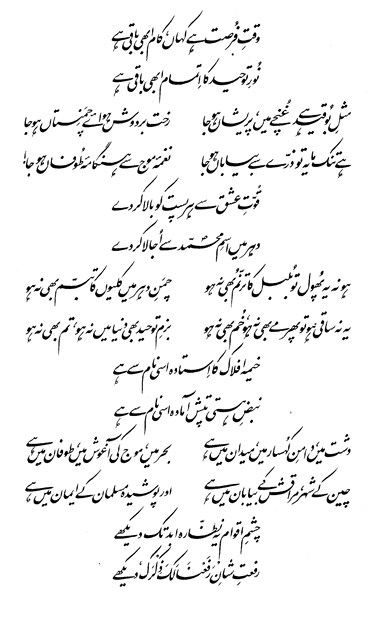 وقتِ فرصت ہے کہاں، کام ابھی باقی ہے
نُورِ توحید کا اتمام ابھی باقی ہے
مثلِ بُو قید ہے غُنچے میں، پریشاں ہوجا رخت بردوش ہوائے چمنستاں ہوجا
ہے تنک مایہ تو ذرّے سے بیاباں ہوجا نغمۂ موج سے ہنگامۂ طُوفاں ہوجا!
قُوّتِ عشق سے ہر پست کو بالا کردے
دہر میں اسمِ محمّد سے اُجالا کردے
ہو نہ یہ پھُول تو بُلبل کا ترنّم بھی نہ ہو چمنِ دہر میں کلیوں کا تبسّم بھی نہ ہو
یہ نہ ساقی ہو تو پھر مے بھی نہ ہو، خُم بھی نہ ہو بزمِ توحید بھی دنیا میں نہ ہو، تم بھی نہ ہو
خیمہ افلاک کا استادہ اسی نام سے ہے
نبضِ ہستی تپش آمادہ اسی نام سے ہے
دشت میں، دامنِ کُہسار میں، میدان میں ہے بحر میں، موج کی آغوش میں، طوفان میں ہے
چین کے شہر، مراقش کے بیابان میں ہے اور پوشیدہ مسلمان کے ایمان میں ہے
چشمِ اقوام یہ نظّارہ ابد تک دیکھے
رفعتِ شانِ رَفَعْنَا لَکَ ذِکْرَکْ دیکھے